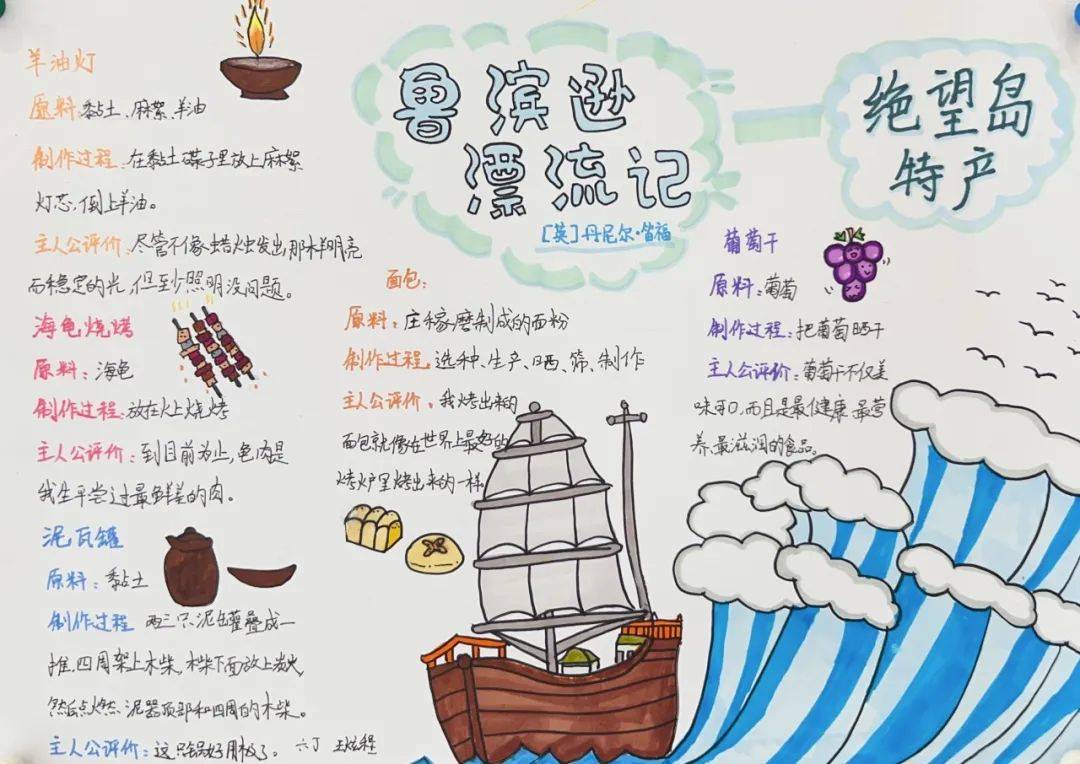 鲁滨逊
漂流记
[英]丹尼尔·笛福
绝望岛
特产
羊油灯
原料:黏土、麻絮、羊油
制作过程:在黏土碟子里放上麻絮
灯芯,倒上羊油。
主人公评价:尽管不像蜡烛发出那样明亮
而稳定的光,但至少照明没问题。
海龟烧烤
原料:海龟
制作过程:放在火上烧烤
主人公评价:到目前为止,龟肉是
我生平尝过最鲜美的肉。
泥瓦罐
原料:黏土
制作过程 两三只泥罐叠成一
堆,四周架上木柴,木柴下面放上炭火
然后点燃泥器顶部和四周的木柴。
主人公评价:这只锅好用极了。
六丁 程
面包:
原料:庄稼磨制成的面粉
制作过程:选种、生产、晒、筛、制作
主人公评价:我烤出来的
面包就像在世界上最好的
烤炉里烤出来的一样。
葡萄干
原料:葡萄
制作过程:把葡萄晒干
主人公评价:葡萄干不仅美
味可口,而且是最健康、最营
养、最滋润的食品。